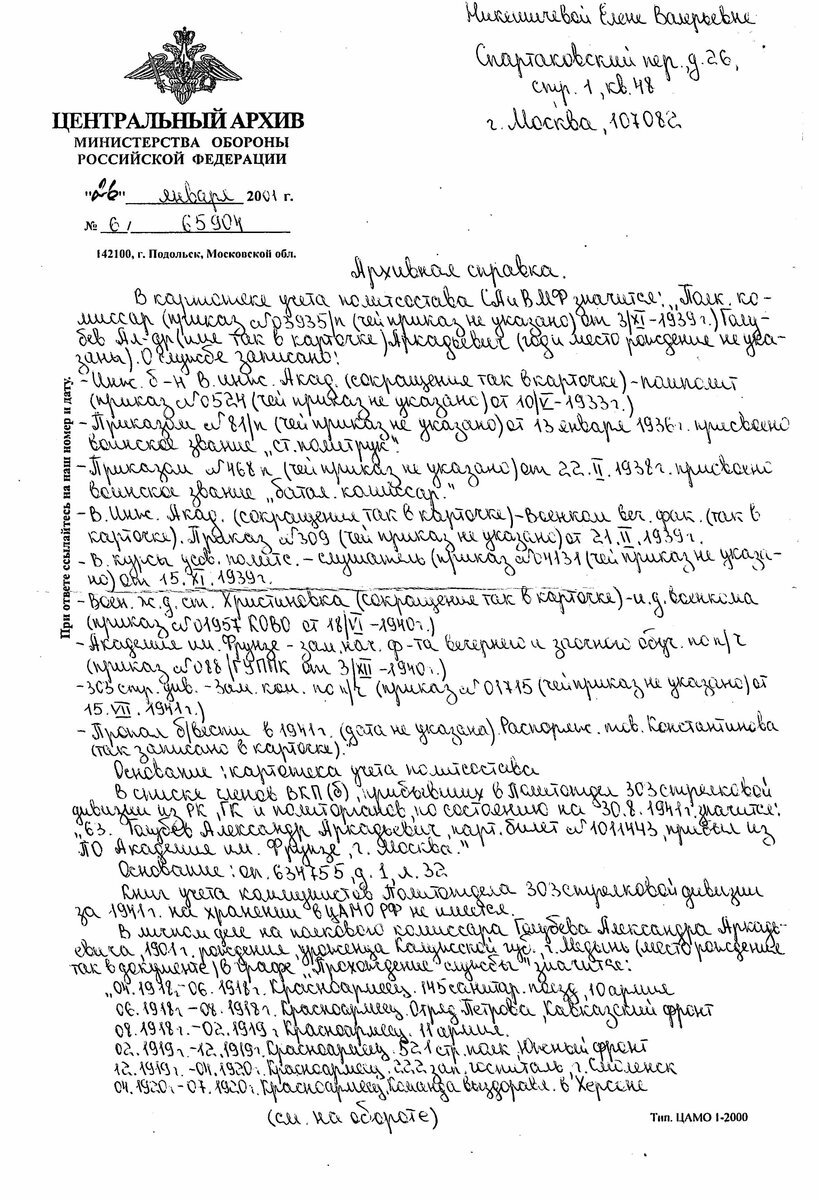 Никешичевой Елене Валерьевне
Спартаковский пер., д. 26,
стр. 1, кв. 48
г. Москва, 107082
ЦЕНТРАЛЬНЫЙ АРХИВ
МИНИСТЕРСТВА ОБОРОНЫ
РОССИЙСКОЙ ФЕДЕРАЦИИ
"26" января 2001 г.
№ 6 / 65904
142100, г. Подольск, Московской обл.
При ответе ссылайтесь на наш номер и дату.
Архивная справка.
В картотеке учета политсостава СА и ВМФ значится: „Полк. ко-
миссар (приказ №03935/п (чей приказ не указано) от 3/XI-1939г.) Голу-
бев Ал-др (имя так в карточке) Аркадьевич (год и место рождение не ука-
заны). О службе записано:
- Инж. б-н В. инж. Акад. (сокращения так в карточке) - помполит
(приказ №0524 (чей приказ не указано) от 10/V-1933г.)
- Приказом №81/п (чей приказ не указано) от 13 января 1936г. присвоено
воинское звание „ст. политрук".
- Приказом №468 п (чей приказ не указано) от 22.II.1938г. присвоено
воинское звание „батал. комиссар."
- В. Инж. Акад. (сокращения так в карточке) - Военком веч. фак. (так в
карточке). Приказ №309 (чей приказ не указано) от 21.II.1939г.
- В. курсы усов. политс. - слушатель (приказ №04131 (чей приказ не указа-
но) от 15.XI.1939г.
- Воен. ж.д. ст. Христиновка (сокращения так в карточке) - и.д. военкома
(приказ №01957 КОВО от 18/VI-1940г.)
- Академия им. Фрунзе - зам. нач. ф-та вечернего и заочного обуч. по п/ч
(приказ №088/ГУППК от 3/XII-1940г.)
- 303 стр. див. - Зам. ком. по п/ч (приказ №01715 (чей приказ не указано) от
15.VII.1941г.)
- Пропал б/вести в 1941г. (дата не указана). Распоряж. тов. Константинова
(так записано в карточке).
Основание: картотека учета политсостава
В списке членов ВКП(б), прибывших в Политотдел 303 стрелковой
дивизии из РК, ГК и политорганов, по состоянию на 30.8.1941г. значится:
„63. Голубев Александр Аркадьевич, парт. билет №1011443, прибыл из
ПО Академия им. Фрунзе, г. Москва."
Основание: оп. 634755, д. 1, л. 32
Книг учета коммунистов Политотдела 303 стрелковой дивизии
за 1941г. на хранении в ЦАМО РФ не имеется.
В личном деле на полкового комиссара Голубева Александра Аркадь-
евича, 1901г. рождения, уроженца Калужской губ., г. Медынь (место рождение
так в документе) в графе „Прохождение службы" значится:
„04.1918.-06.1918г. Красноармеец. 145 санитар. поезд, 10 армия
06.1918г.-08.1918г. Красноармеец. Отряд Петрова, Кавказский фронт
08.1918г.-02.1919г Красноармеец. 11 армия.
02.1919г.-12.1919г. Красноармеец. 521 стр. полк, Южный фронт
12.1919г.-04.1920г. Красноармеец. 222 зап. госпиталь, г. Смоленск
04.1920г.-07.1920г. Красноармеец. Команда выздоравл. в Херсоне
(см. на обороте)
Тип. ЦАМО 1-2000